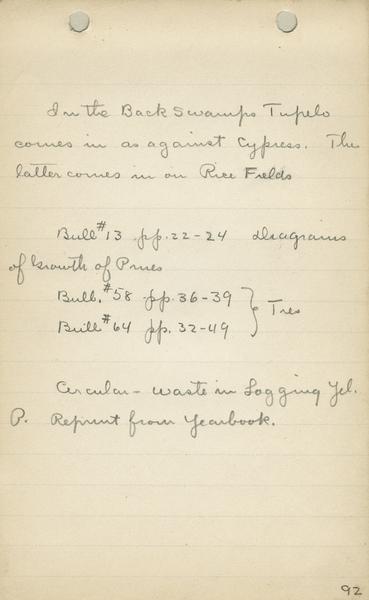 In the Back Swamps Tupelo
comes in as against Cypress. The
latter comes in on Rice Fields
Bull #13 pp. 22-24 Diagrams
of Growth of Pines
Bull. #58 pp. 36-39
Bull #64 pp. 32-49 } Tres
Circular - Waste in Logging Yel.
P. Reprint from Yearbook.
92